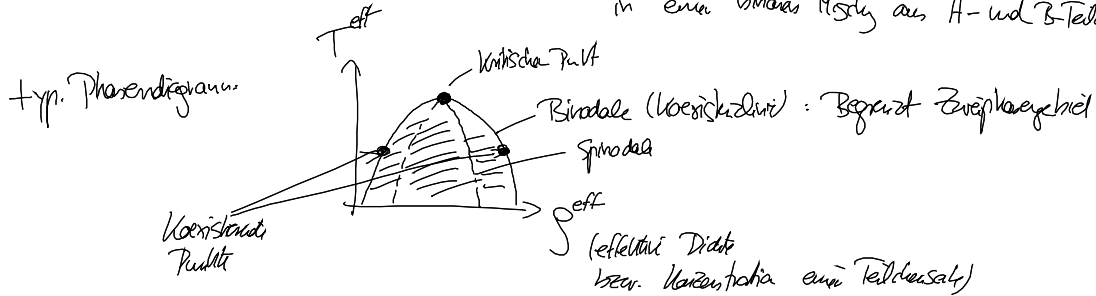 in einer binären Mischg aus A- und B-Teil
T^eff
kritischer Punkt
typ. Phasendiagramm
Binodale (Koexistenzlinie) : Begrenzt Zweiphasengebiet
Spinodale
Koexistierende
Punkte
ρ^eff
(effektive Dichte
bzw. Konzentration einer Teilchensorte)